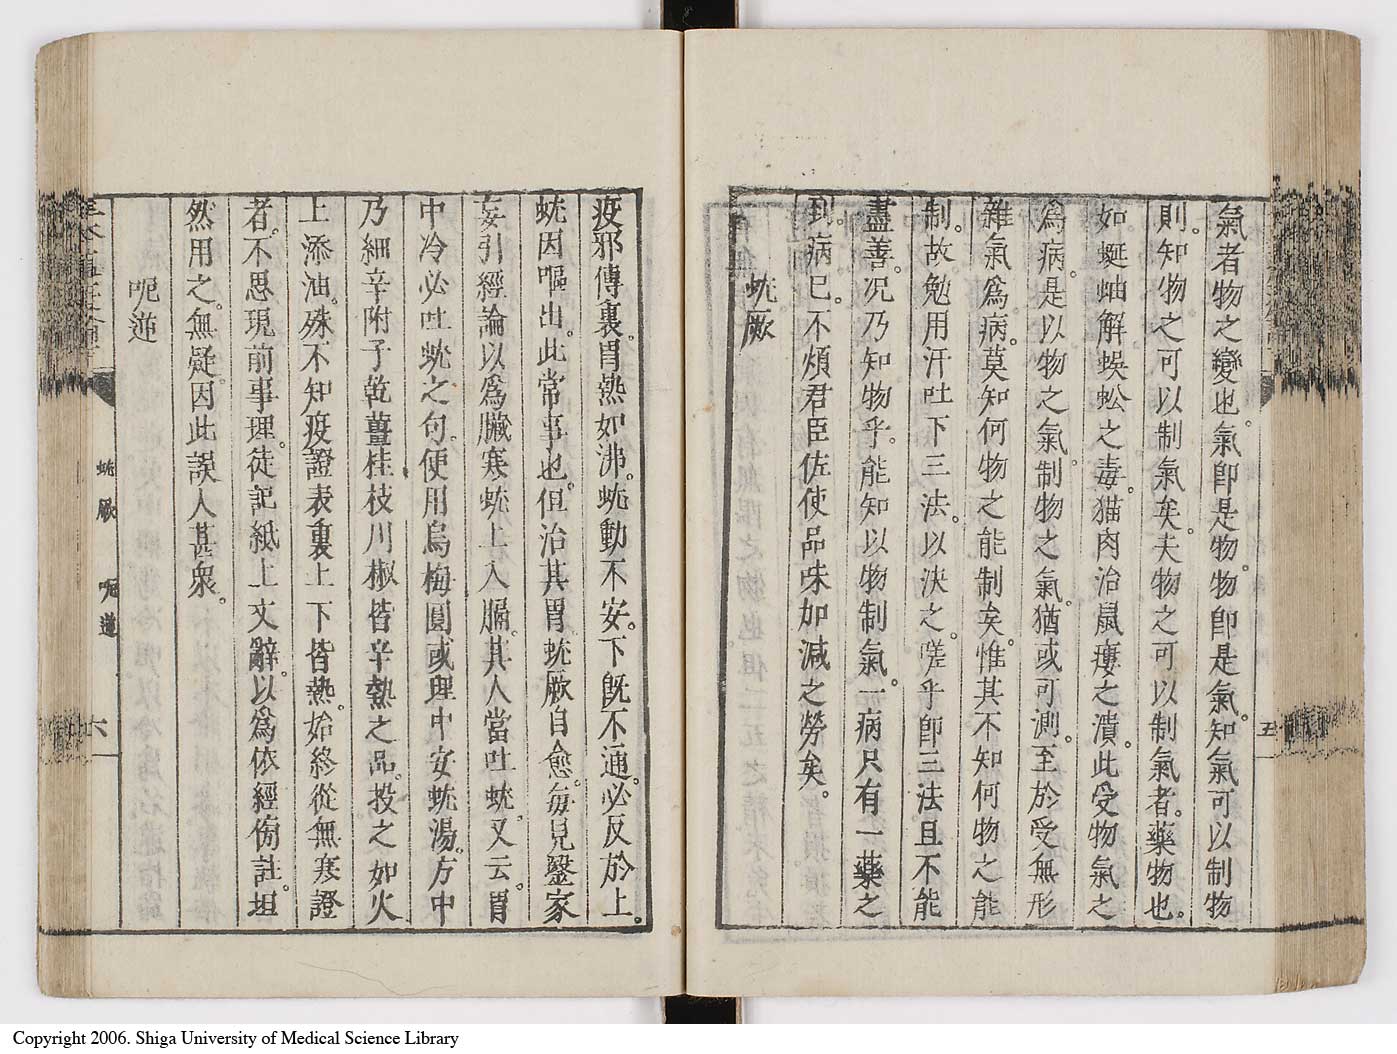 氣者物之變也。氣卽是物。物卽是氣。知氣可以制物
則。知物之可以制氣矣。夫物之可以制氣者。藥物也。
如蜒蚰解蜈蚣之毒。猫肉治鼠瘻之潰。此受物氣之
爲病。是以物之氣制物之氣。猶或可測。至於受無形
雜氣爲病。莫知何物之能制矣。惟其不知何物之能
制。故勉用汗吐下三法。以決之。嗟乎卽三法且不能
盡善。况乃知物乎。能知以物制氣。一病只有一藥之
到。病已。不煩君臣佐使品味加減之勞矣。
蚘厥
五
疫邪傳裏。胃熱如沸。蚘動不安。下旣不通。必反於上。
蚘因嘔出。此常事也。但治其胃。蚘厥自愈。每見毉家
妄引經論以爲臟寒蚘上入膈。其人當吐蚘。又云。胃
中冷必吐蚘之句。便用烏梅圓或理中安蚘湯。方中
乃細辛附子乾薑桂枝川椒皆辛熱之品。投之如火
上添油。殊不知疫證表裏上下皆熱。始終從無寒證
者。不思現前事理。徒記紙上文辭。以爲依經傍註。坦
然用之。無疑。因此誤人甚衆。
呃逆
蚘厥 呃逆
六
Copyright 2006. Shiga University of Medical Science Library